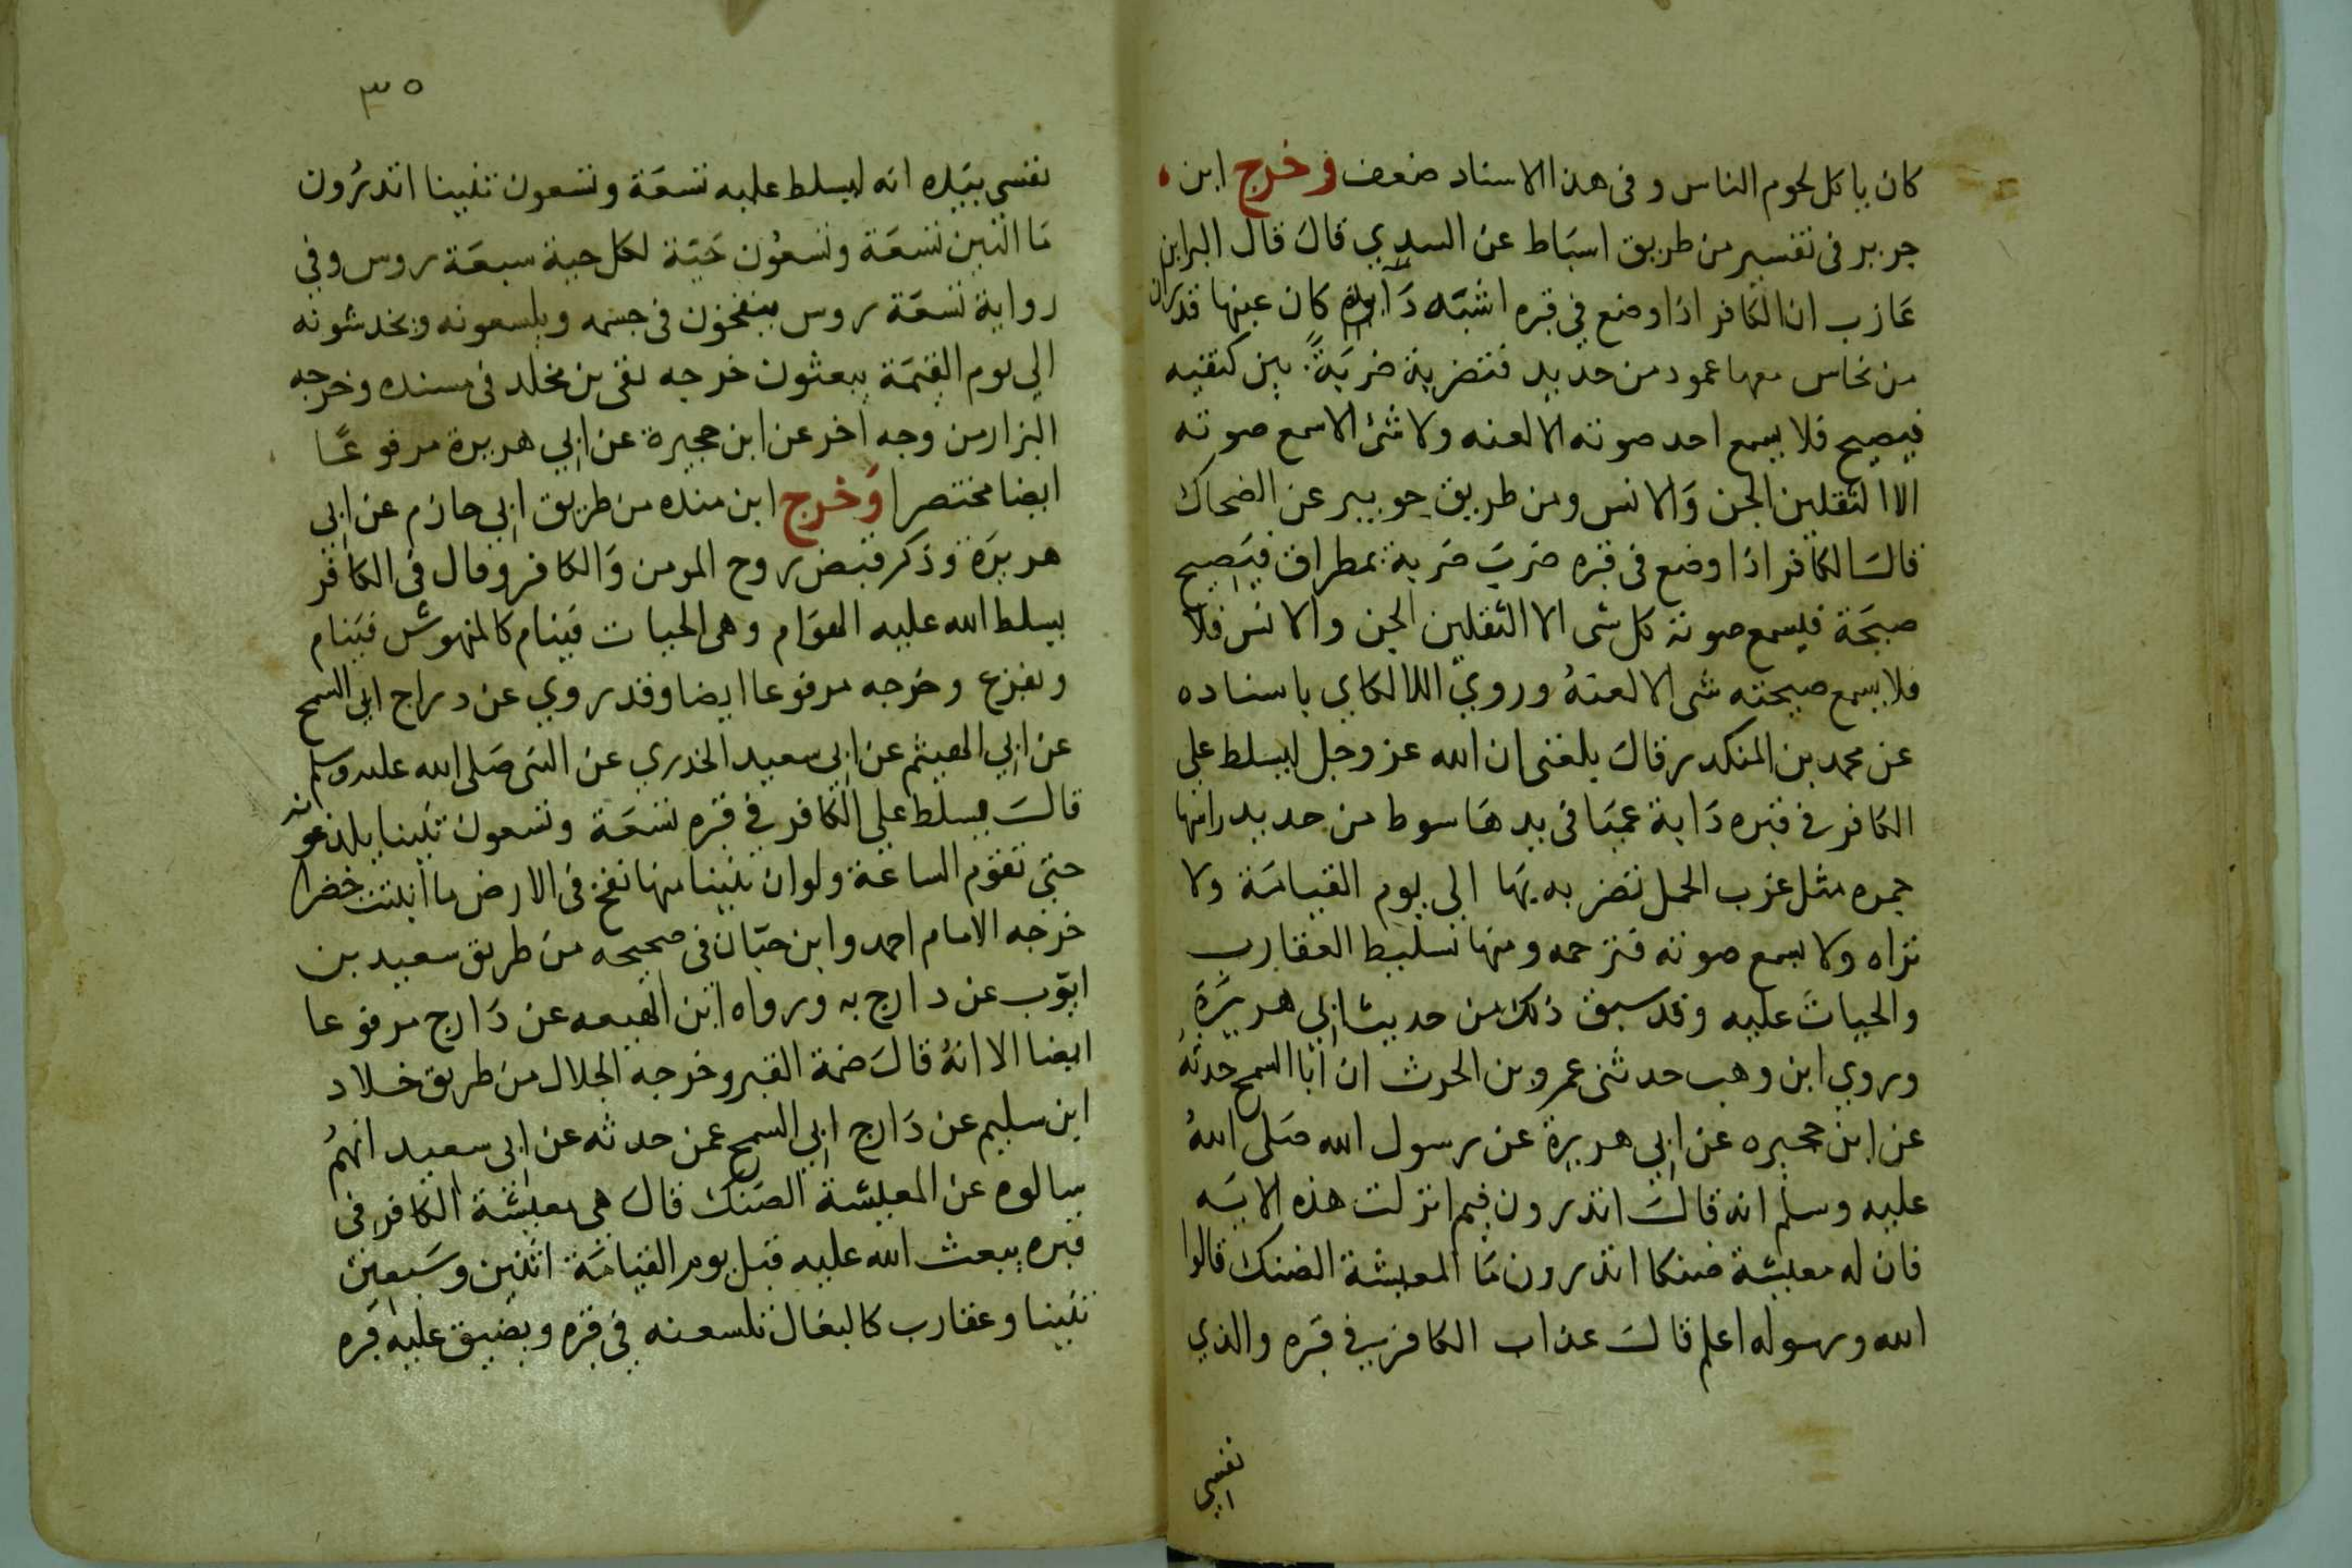 كان ياكل لحوم الناس و فى هذا الاسناد ضعف وخرج ابن
جرير فى تفسير من طريق اسباط عن السدي قال قال البرا بن
عازب ان الكافر اذا وضع في قبره اتته دابة كان عينها قدران
من نحاس معها عمود من حديد فتضربه ضربة بين كتفيه
فيصيح فلا يسمع احد صوته الا لعنه ولا شئ الا سمع صوته
الا الثقلين الجن والانس ومن طريق جويبر عن الضحاك
قال الكافر اذا وضع فى قبره ضرب ضربة بمطراق فيصيح
صيحة فيسمع صوته كل شى الا الثقلين الجن والانس فلا
فلا يسمع صيحته شى الا لعنه وروي اللالكاي باسناده
عن محمد بن المنكدر قال بلغنى ان الله عز وجل ليسلط على
الكافر فى قبره دابة عميا فى يدها سوط من حديد راسها
جمره مثل غرب الجمل تضربه بها الى يوم القيامة ولا
تراه ولا يسمع صوته فترحمه ومنها تسليط العقارب
والحيات عليه وقد سبق ذلك من حديث ابي هريرة
وروي ابن وهب حدثنى عمرو بن الحرث ان ابا السمح حدثه
عن ابن حجيره عن ابي هريرة عن رسول الله صلى الله
عليه وسلم انه قال اتدرون فيم انزلت هذه الاية
فان له معيشة ضنكا اتدرون ما المعيشة الضنك قالوا
الله ورسوله اعلم قال عذاب الكافر في قبره والذي
نفسي
٣٥
نفسي بيده انه ليسلط عليه تسعة وتسعون تنينا اتدرون
ما التنين تسعة وتسعون حية لكل حية سبعة روس وفي
رواية تسعة روس ينفخون فى جسمه ويلسعونه ويخدشونه
الي يوم القيمة يبعثون خرجه بقى بن مخلد فى مسنده وخرجه
البزار من وجه اخر عن ابن حجيرة عن ابي هريرة مرفوعا
ايضا مختصرا وخرج ابن منده من طريق ابي حازم عن ابي
هريرة وذكر قبض روح المومن والكافر وقال فى الكافر
يسلط الله عليه الهوام وهى الحيات فينام كالمنهوش فينام
ويفزع وخرجه مرفوعا ايضا وقد روي عن دراج ابي السمح
عن ابي الهيثم عن ابي سعيد الخدري عن النبى صلى الله عليه وسلم
قال يسلط على الكافر في قبره تسعة وتسعون تنينا يلدغونه
حتى تقوم الساعة ولو ان تنينا منها نفخ فى الارض ما انبتت خضرا
خرجه الامام احمد وابن حبان فى صحيحه من طريق سعيد بن
ايوب عن دراج به ورواه ابن الهيعه عن دارج مرفوعا
ايضا الا انه قال ضمة القبر وخرجه الخلال من طريق خلاد
ابن سليم عن دارج ابي السمح عمن حدثه عن ابى سعيد انهم
سالوه عن المعيشة الضنك قال هى معيشة الكافر فى
قبره يبعث الله عليه قبل يوم القيامة اثنين وسبعين
تنينا وعقارب كالبغال تلسعنه في قبره ويضيق عليه قبره